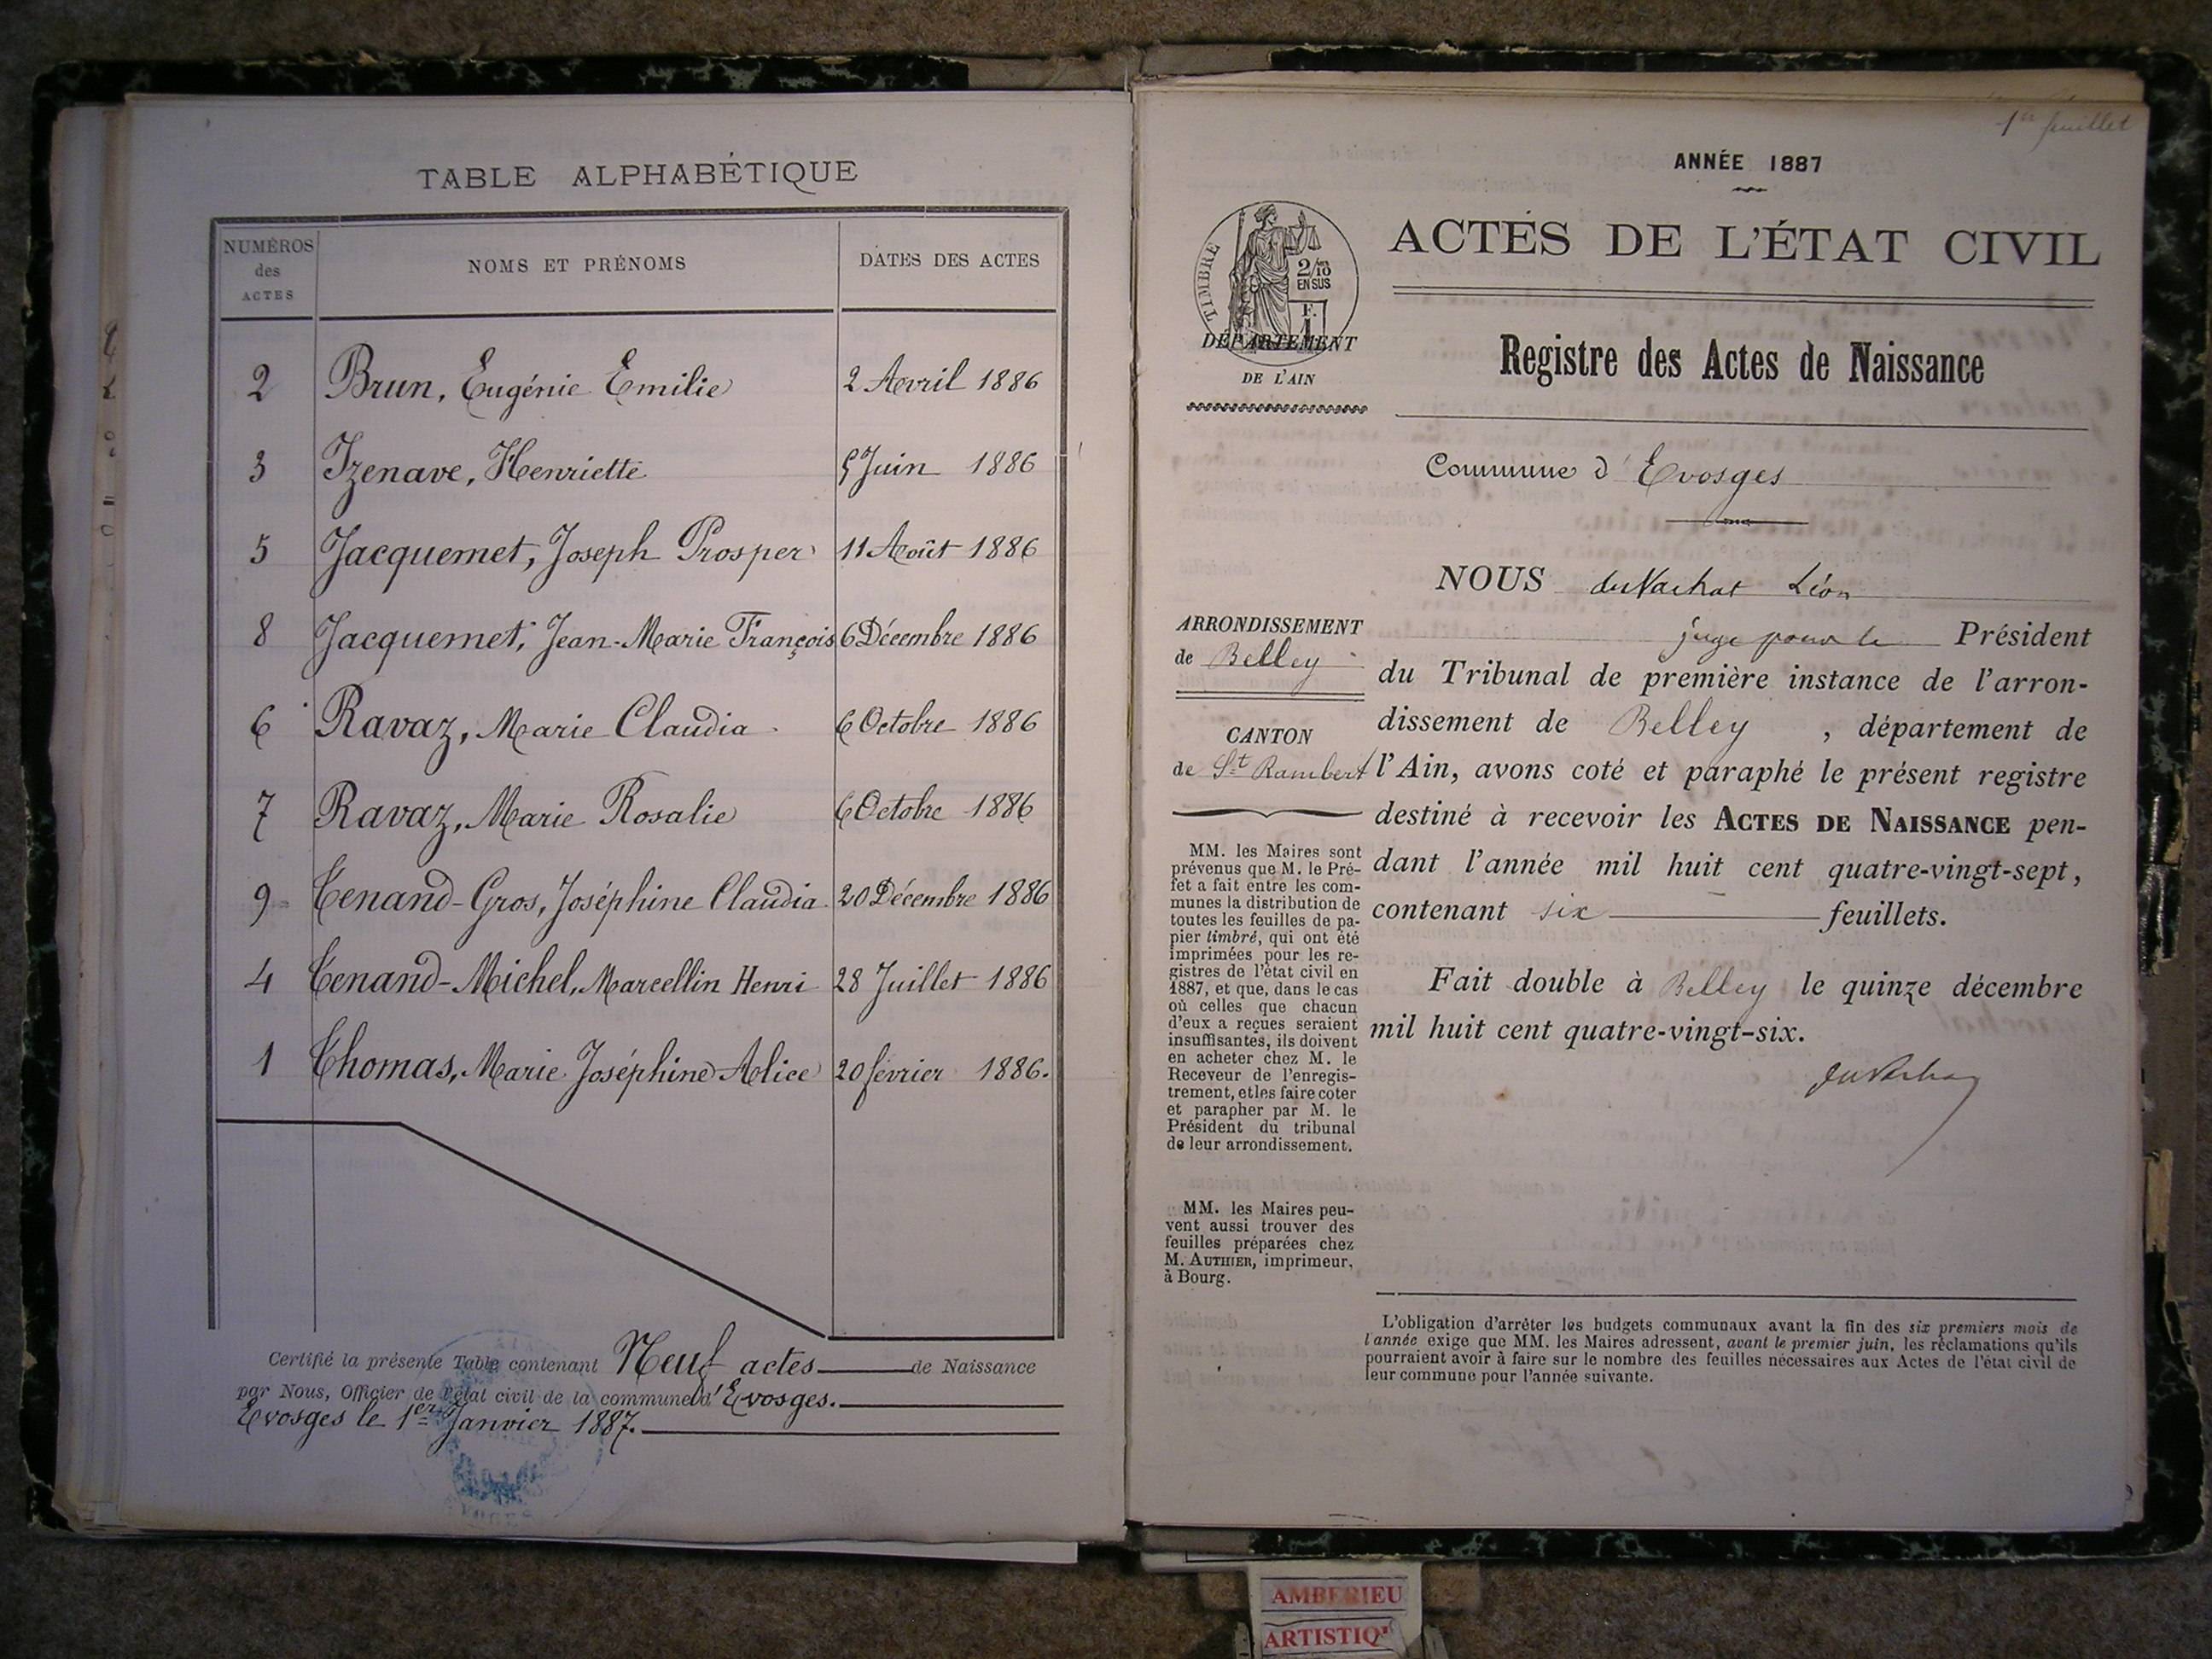 TABLE ALPHABÉTIQUE
NUMÉROS des ACTES NOMS ET PRÉNOMS DATES DES ACTES
2 Brun, Eugénie Emilie 2 Avril 1886
3 Izenave, Henriette 5 Juin 1886
5 Jacquemet, Joseph Prosper 11 Août 1886
8 Jacquemet, Jean-Marie François 6 Décembre 1886
6 Ravaz, Marie Claudia 6 Octobre 1886
7 Ravaz, Marie Rosalie 6 Octobre 1886
9 Tenand-Gros, Joséphine Claudia 20 Décembre 1886
4 Tenand-Michel, Marcellin Henri 28 Juillet 1886
1 Thomas, Marie Joséphine Alice 20 février 1886.
Certifié la présente Table contenant Neuf actes de Naissance
par Nous, Officier de l'état civil de la commune d'Evosges.
Evosges le 1er Janvier 1887.
1er feuillet
ANNÉE 1887
ACTES DE L'ÉTAT CIVIL
TIMBRE
2/10es
EN SUS
F.
1
DÉPARTEMENT
DE L'AIN
Registre des Actes de Naissance
Commune d'Evosges
ARRONDISSEMENT
de Belley
CANTON
de St Rambert
MM. les Maires sont
prévenus que M. le Pré-
fet a fait entre les com-
munes la distribution de
toutes les feuilles de pa-
pier timbré, qui ont été
imprimées pour les re-
gistres de l'état civil en
1887, et que, dans le cas
où celles que chacun
d'eux a reçues seraient
insuffisantes, ils doivent
en acheter chez M. le
Receveur de l'enregis-
trement, et les faire coter
et parapher par M. le
Président du tribunal
de leur arrondissement.
MM. les Maires peu-
vent aussi trouver des
feuilles préparées chez
M. AUTHIER, imprimeur,
à Bourg.
NOUS duVachat Léon
juge pour le Président
du Tribunal de première instance de l'arron-
dissement de Belley, département de
l'Ain, avons coté et paraphé le présent registre
destiné à recevoir les ACTES DE NAISSANCE pen-
dant l'année mil huit cent quatre-vingt-sept,
contenant six feuillets.
Fait double à Belley le quinze décembre
mil huit cent quatre-vingt-six.
duVachat
L'obligation d'arrêter les budgets communaux avant la fin des six premiers mois de
l'année exige que MM. les Maires adressent, avant le premier juin, les réclamations qu'ils
pourraient avoir à faire sur le nombre des feuilles nécessaires aux Actes de l'état civil de
leur commune pour l'année suivante.
AMBERIEU
ARTISTIQ